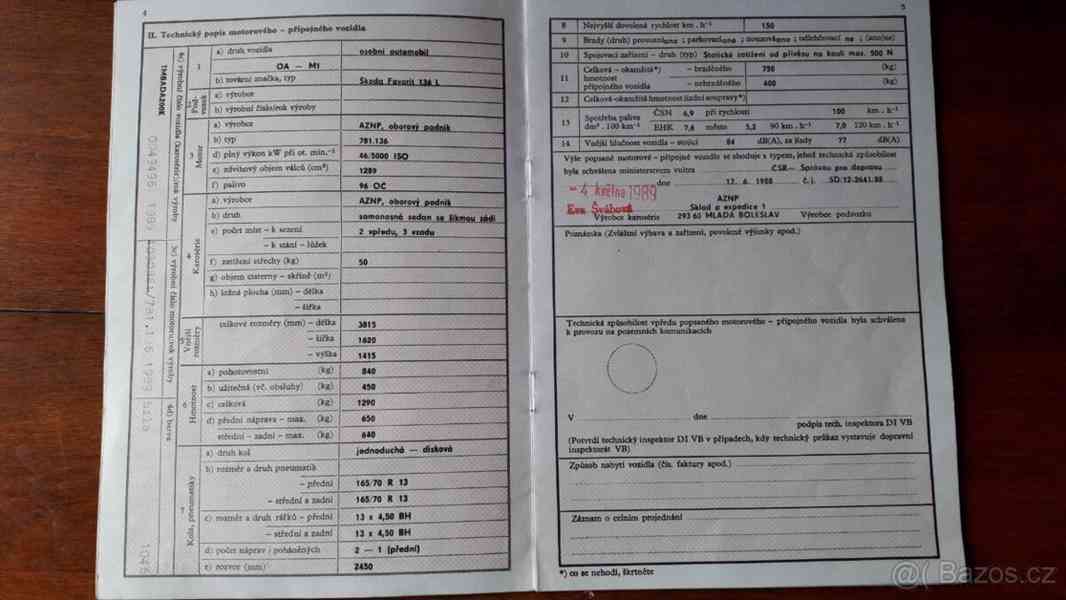 4
II. Technický popis motorového – přípojného vozidla
a) druh vozidla osobní automobil
OA — M1
1
b) tovární značka, typ Škoda Favorit 136 L
2
Podvozek
a) výrobce
b) výrobní číslo/rok výroby
3
Motor
a) výrobce AZNP, oborový podnik
b) typ 781.136
d) plný výkon kW při ot. min.⁻¹ 46/5000 ISO
e) zdvihový objem válců (cm³) 1289
f) palivo 96 OČ
4
Karosérie
a) výrobce AZNP, oborový podnik
b) druh samonosná sedan se šikmou zádí
e) počet míst – k sezení 2 vpředu, 3 vzadu
– k stání – lůžek
f) zatížení střechy (kg) 50
g) objem cisterny – skříně (m³)
h) ložná plocha (mm) – délka
– šířka
5
Vnější rozměry
celkové rozměry (mm) – délka 3815
– šířka 1620
– výška 1415
6
Hmotnost
a) pohotovostní (kg) 840
b) užitečná (vč. obsluhy) (kg) 450
c) celková (kg) 1290
d) přední náprava – max. (kg) 650
střední – zadní – max. (kg) 640
7
Kola, pneumatiky
a) druh kol jednoduchá — disková
b) rozměr a druh pneumatik
– přední 165/70 R 13
– střední a zadní 165/70 R 13
c) rozměr a druh ráfků – přední 13 x 4,50 BH
– střední a zadní 13 x 4,50 BH
d) počet náprav / poháněných 2 — 1 (přední)
e) rozvor (mm) 2450
výrobní číslo vozidla (karosérie)/rok výroby
výrobní číslo motoru/rok výroby
barva
5
8 Nejvyšší dovolená rychlost km . h⁻¹ 150
9 Brzdy (druh) provozní ano ; parkovací ano ; nouzová ano ; odlehčovací ne ; (ano/ne)
10 Spojovací zařízení – druh (typ) Statické zatížení od přívěsu na kouli max. 500 N
11 Celková – okamžitá*) hmotnost přípojného vozidla
– brzděného 750 (kg)
– nebrzděného 400 (kg)
12 Celková-okamžitá hmotnost jízdní soupravy*)
13 Spotřeba paliva dm³ . 100 km⁻¹
ČSN 6,9 při rychlosti 100 km . h⁻¹
EHK 7,6 město 5,2 90 km . h⁻¹ 7,0 120 km . h⁻¹
14 Vnější hlučnost vozidla – stojící 84 dB(A), za jízdy 77 dB(A)
Výše popsané motorové – přípojné vozidlo se shoduje s typem, jehož technická způsobilost
byla schválena ministerstvem vnitra ČSR— Správou pro dopravu
dne 17. 6. 1988 č. j. SD/12-2641.88
– 4. května 1989
AZNP
Eva Švábová Sklad a expedice 1
Výrobce karosérie 293 60 MLADÁ BOLESLAV Výrobce podvozku
Poznámka (Zvláštní výbava a zařízení, povolené výjimky apod.)
Technická způsobilost vpředu popsaného motorového – přípojného vozidla byla schválena
k provozu na pozemních komunikacích
V dne
podpis tech. inspektora DI VB
(Potvrdí technický inspektor DI VB v případech, kdy technický průkaz vystavuje dopravní
inspektorát VB)
Způsob nabytí vozidla (čís. faktury apod.)
Záznam o celním projednání
*) co se nehodí, škrtněte
@ Bazos.cz